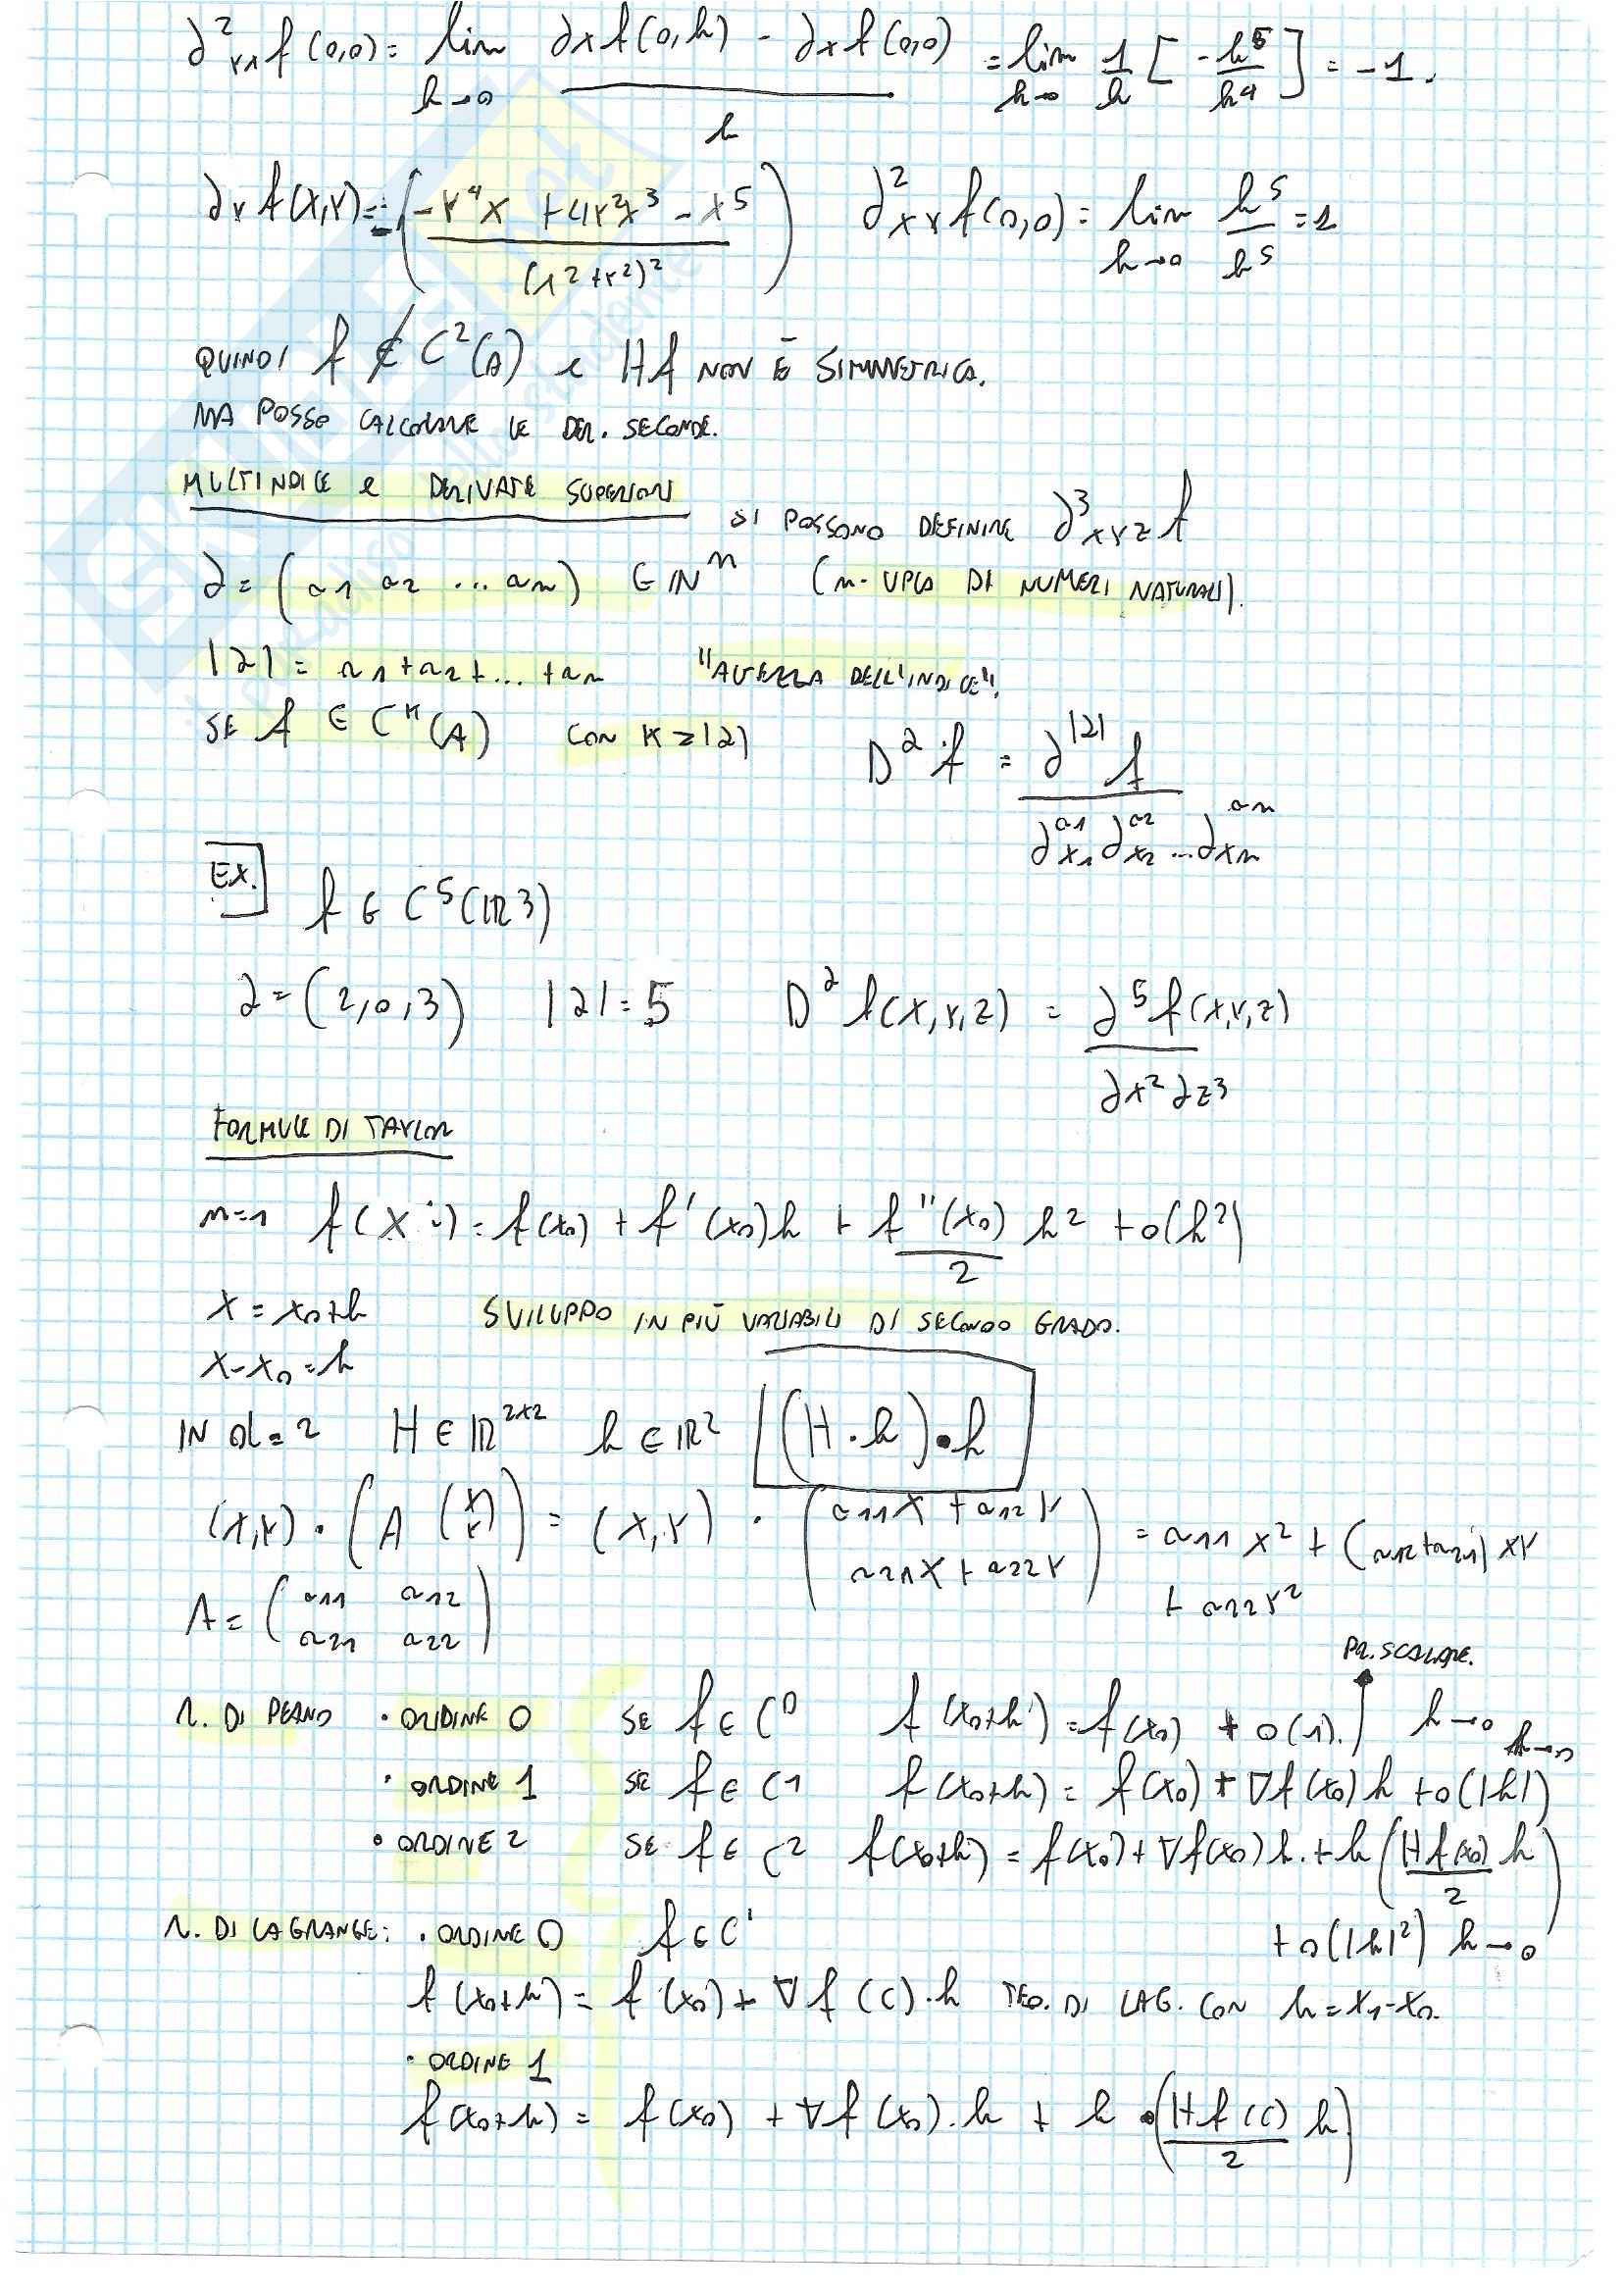 ∂²yx f(0,0) = lim h→0 (∂x f(0,h) - ∂x f(0,0))/h = lim h→0 1/h [-h⁵/h⁴] = -1.
∂y f(x,y) = -((-y⁴x + 4y²x³ - x⁵)/(x²+y²)²) ∂²xy f(0,0) = lim h→0 h⁵/h⁵ = 1
QUINDI f ∉ C²(A) e Hf NON È SIMMETRICA.
MA POSSO CALCOLARE LE DER. SECONDE.
MULTINDICE e DERIVATE SUPERIORI
SI POSSONO DEFINIRE ∂³xyz f
α = (a1 a2 ... an) ∈ ℕⁿ (n-UPLA DI NUMERI NATURALI).
|α| = a1+a2+...+an "ALTEZZA DELL'INDICE".
SE f ∈ Cᴷ(A) CON K≥|α| D^α f = ∂^|α| f / ∂x1^a1 ∂x2^a2 ... ∂xn^an
EX. f ∈ C⁵(ℝ³)
α = (2,0,3) |α| = 5 D^α f(x,y,z) = ∂⁵f(x,y,z) / ∂x²∂z³
FORMULE DI TAYLOR
n=1 f(x) = f(x0) + f'(x0)h + f''(x0)/2 h² + o(h²)
x = x0+h SVILUPPO IN PIÙ VARIABILI DI SECONDO GRADO.
x-x0 = h
IN d=2 H ∈ ℝ²ˣ² h ∈ ℝ² (H·h)·h
(x,y)·(A (x y)) = (x,y)·(a11x + a12y a21x + a22y) = a11x² + (a12+a21)xy
+ a22y²
A = (a11 a12 a21 a22)
PR. SCALARE.
R. DI PEANO • ORDINE 0 SE f ∈ C⁰ f(x0+h) = f(x0) + o(1). h→0
• ORDINE 1 SE f ∈ C1 f(x0+h) = f(x0) + ∇f(x0)h + o(|h|) h→0
• ORDINE 2 SE f ∈ C² f(x0+h) = f(x0) + ∇f(x0)h. + h(Hf(x0)/2 h)
+ o(|h|²) h→0
R. DI LAGRANGE: • ORDINE 0 f ∈ C¹
f(x0+h) = f(x0) + ∇f(c)·h TEO. DI LAG. CON h = x1-x0.
• ORDINE 1
f(x0+h) = f(x0) + ∇f(x0)·h + h·(Hf(c)/2 h)